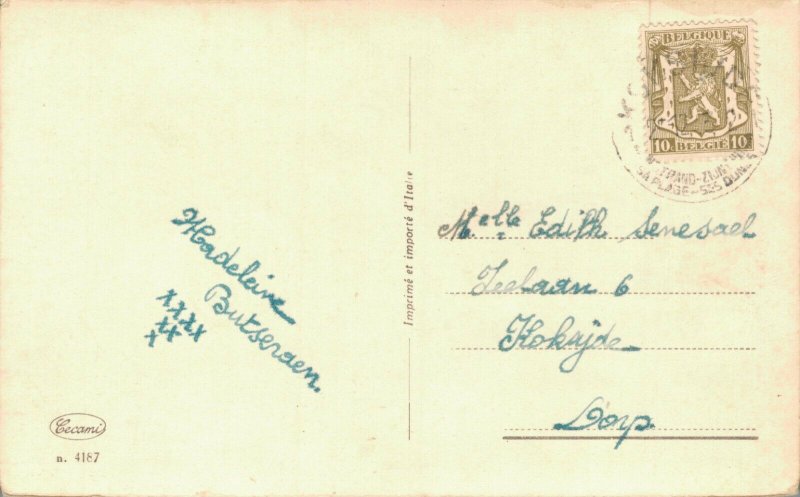 BELGIQUE
10 BELGIË 10
STRAND-ZIJN
SA PLAGE-SES DUNES
Imprimé et importé d'Italie
Madeleine
Butseraen.
xxxx
xx
x
Melle Edith Senesael
Zeelaan 6
Koksijde
Dorp
Cecami
n. 4187